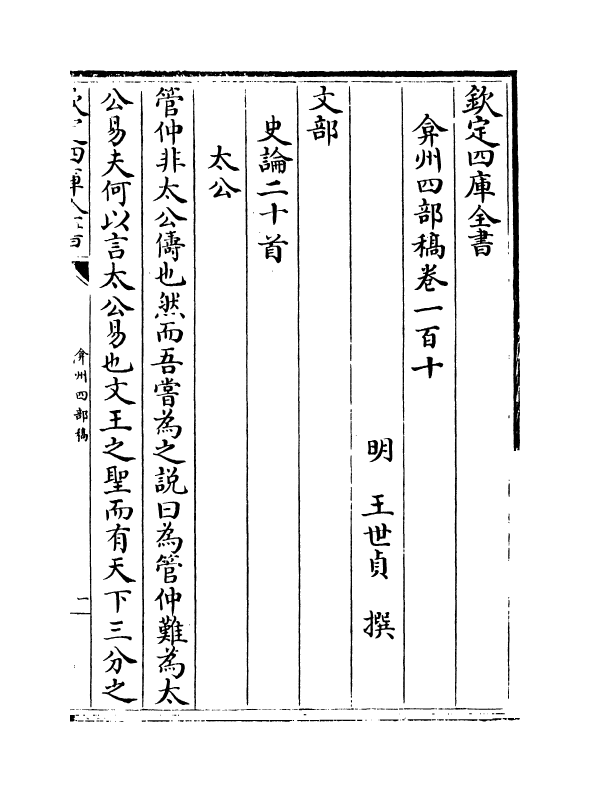 欽定四庫全書
弇州四部稿卷一百十
明 王世貞 撰
文部
史論二十首
太公
管仲非太公儔也然而吾嘗為之説曰為管仲難為太
公易夫何以言太公易也文王之聖而有天下三分之
弇州四部稿
一